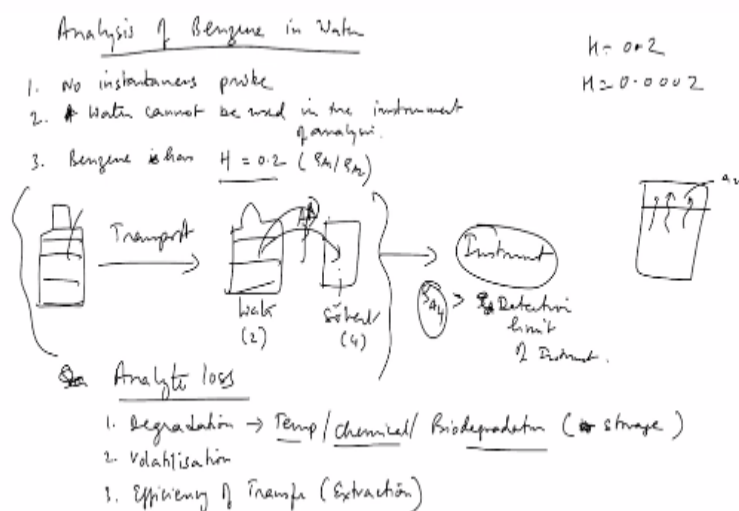 Analysis of Benzene in Water
H = 0.2
H = 0.0002
1. No instantaneous probe
2. Water cannot be used in the instrument
of analysis.
3. Benzene has H = 0.2 (ρA1/ρA2)
Transport
Water
(2)
Solvent
(4)
Instrument
ρA4 > Detection
limit
of Instrument.
Analyte loss
1. Degradation → Temp/chemical/ Biodegradation (storage)
2. Volatilisation
3. Efficiency of Transfer (Extraction)